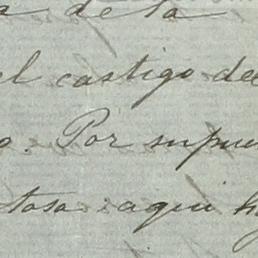 a de la
el castigo de
o. Por supue
tosa aqui h